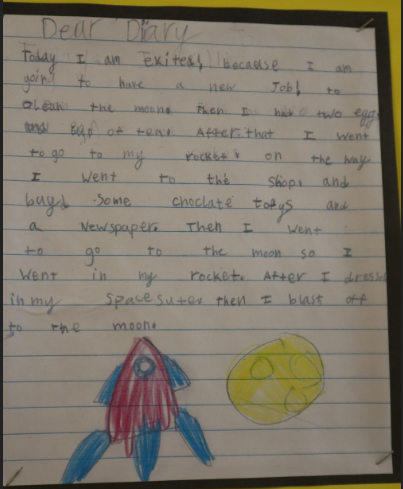 Dear Diary
Today I am exited, because I am
going to have a new Job, to
clean the moon. Then I have two egg
and of tea. After that I went
to go to my rocket. on the way
I went to the shop, and
buyed some choclate totys and
a Newspaper. Then I went
to go to the moon so I
went in my rocket. After I dress
in my space suter then I blast off
to the moon.